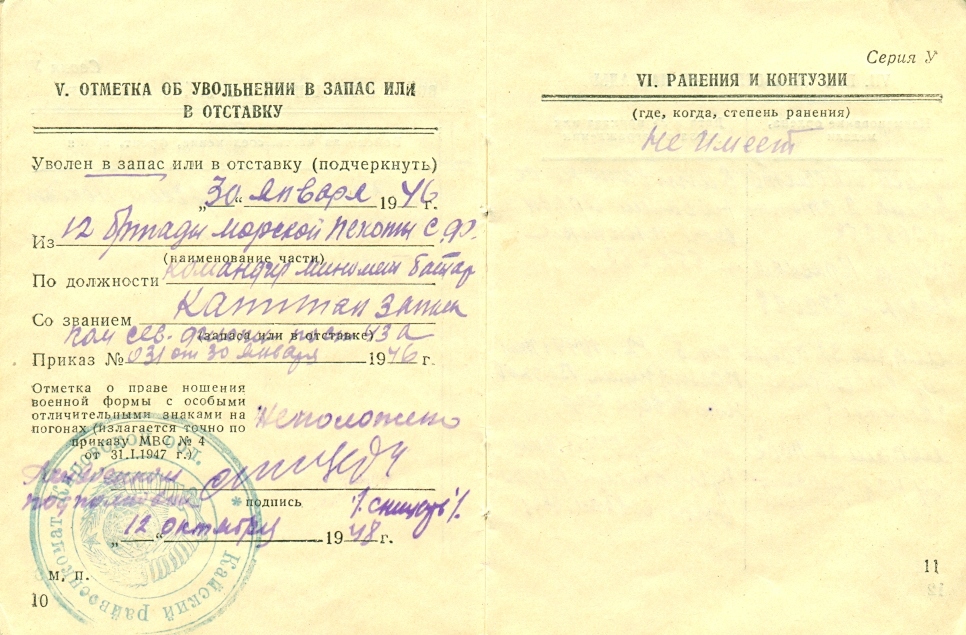 V. ОТМЕТКА ОБ УВОЛЬНЕНИИ В ЗАПАС ИЛИ
В ОТСТАВКУ
Уволен в запас или в отставку (подчеркнуть)
„30“ января 1946
Из 12 бригады морской пехоты С.Ф.
(наименование части)
По должности командир миномет батар
Со званием Капитан запаса
(запаса или в отставке)
Приказ № 031 от 30 января 1946 г.
Отметка о праве ношения
военной формы с особыми
отличительными знаками на
погонах (излагается точно по
приказу МВС № 4
от 31.I.1947 г.)
Неположено
подполковник
подпись
„12“ октября 1948 г.
м. п.
Кайский райвоенкомат Кировской обл.
10
Серия У
VI. РАНЕНИЯ И КОНТУЗИИ
(где, когда, степень ранения)
Не имеет
11